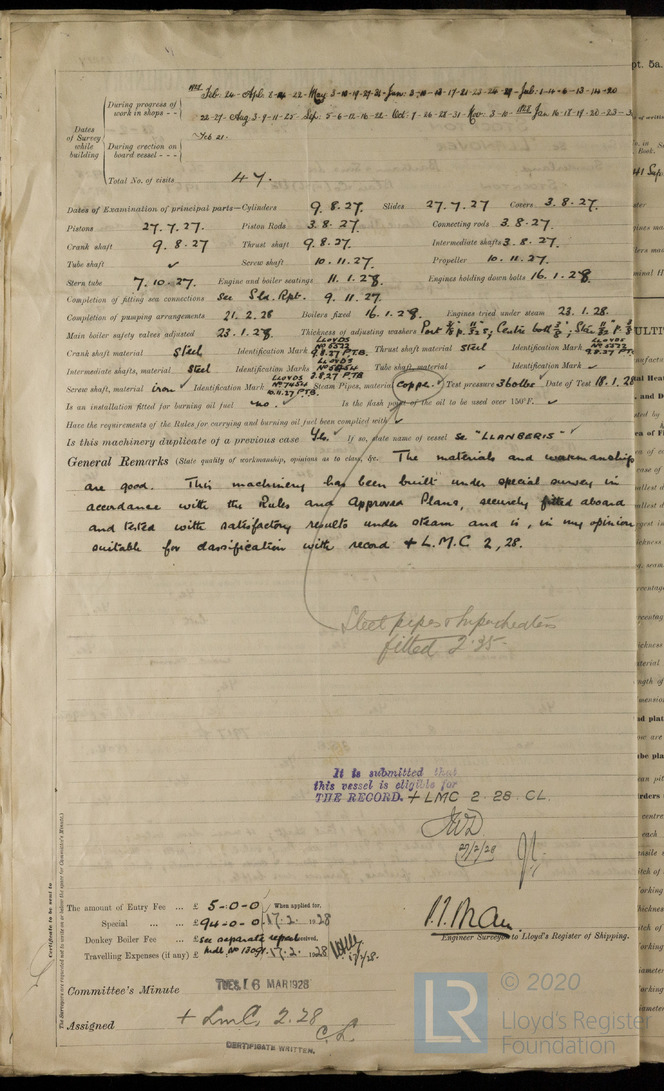 pt. 5a.
During progress of work in shops - - 1927 Feb. 24 - Apl. 8-14-22- May 3-10-19-27-31- Jun: 3-10-13-17-21-23-24-29- Jul: 1-4-6-13-14-20
22-27- Aug 3-9-11-25- Sep: 5-6-12-16-22- Oct: 7-26-28-31- Nov: 3-10- 1928 Jan. 16-18-19-20-23-
Dates of Survey while building
During erection on board vessel - - - Feb 21.
Total No. of visits 47.
Dates of Examination of principal parts—Cylinders 9.8.27 Slides 27.7.27 Covers 3.8.27.
Pistons 27.7.27. Piston Rods 3.8.27. Connecting rods 3.8.27.
Crank shaft 9.8.27 Thrust shaft 9.8.27. Intermediate shafts 3.8.27.
Tube shaft ✓ Screw shaft 10.11.27. Propeller 10.11.27.
Stern tube 7.10.27. Engine and boiler seatings 11.1.28. Engines holding down bolts 16.1.28.
Completion of fitting sea connections See Sls. Rpt. 9.11.27.
Completion of pumping arrangements 21.2.28 Boilers fixed 16.1.28. Engines tried under steam 23.1.28.
Main boiler safety valves adjusted 23.1.28. Thickness of adjusting washers
Crank shaft material Steel Identification Mark LLOYDS Nº 6572 9.8.27 P.T.B. Thrust shaft material Steel Identification Mark LLOYDS Nº 6572 9.8.27 P.T.
Intermediate shafts, material Steel Identification Marks LLOYDS 3.8.27 P.T.B Tube shaft, material ✓ Identification Mark ✓
Screw shaft, material iron ✓ Identification Mark LLOYDS Nº 7454 10.11.27 P.T.B. Steam Pipes, material Copper ✓ Test pressure 360 lbs ✓ Date of Test 18.1.28
Is an installation fitted for burning oil fuel no. ✓ Is the flash point of the oil to be used over 150°F. ✓
Have the requirements of the Rules for carrying and burning oil fuel been complied with ✓
Is this machinery duplicate of a previous case Yes. ✓ If so, state name of vessel SS. "LLANBERIS" ✓
General Remarks (State quality of workmanship, opinions as to class, &c. The materials and workmanship
are good. This machinery has been built under special survey in
accordance with the Rules and Approved Plans, securely fitted aboard
and tested with satisfactory results under steam and is, in my opinion
suitable for classification with record + L.M.C 2,28.
Steel pipes & superheaters
fitted 2.35.
It is submitted that
this vessel is eligible for
THE RECORD. + LMC 2.28. CL.
27/2/28
Certificate to be sent to
The Surveyors are requested not to write on or below the space for Committee's Minute.
The amount of Entry Fee ... £ 5-0-0 When applied for,
Special ... ... £ 94-0-0 17.2.1928
Donkey Boiler Fee ... £ See separate report received,
Travelling Expenses (if any) £ 17.2.1928 17/2/28.
Engineer Surveyor to Lloyd's Register of Shipping.
Committee's Minute TUES. 6 MAR 1928
Assigned + LMC 2.28
C.L.
CERTIFICATE WRITTEN.
LR © 2020
Lloyd's Register
Foundation